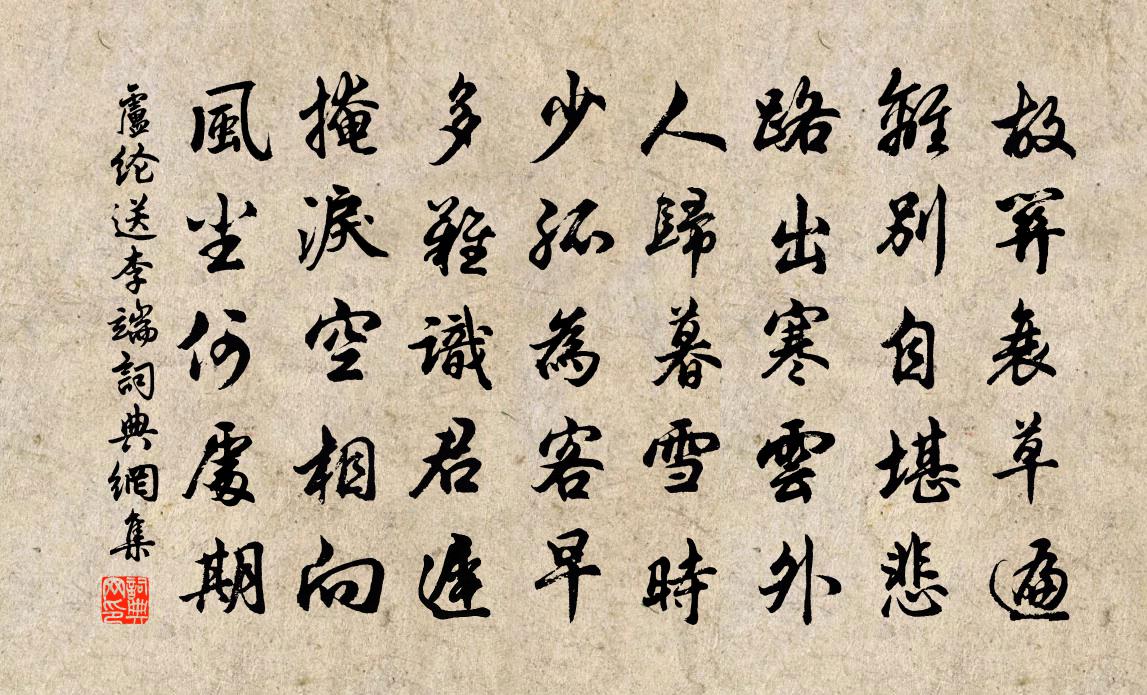 故關衰草遍
離別自堪悲
路出寒雲外
人歸暮雪時
少孤為客早
多難識君遲
掩淚空相向
風尘何處期
盧纶送李端詞典網集
詞典
网印